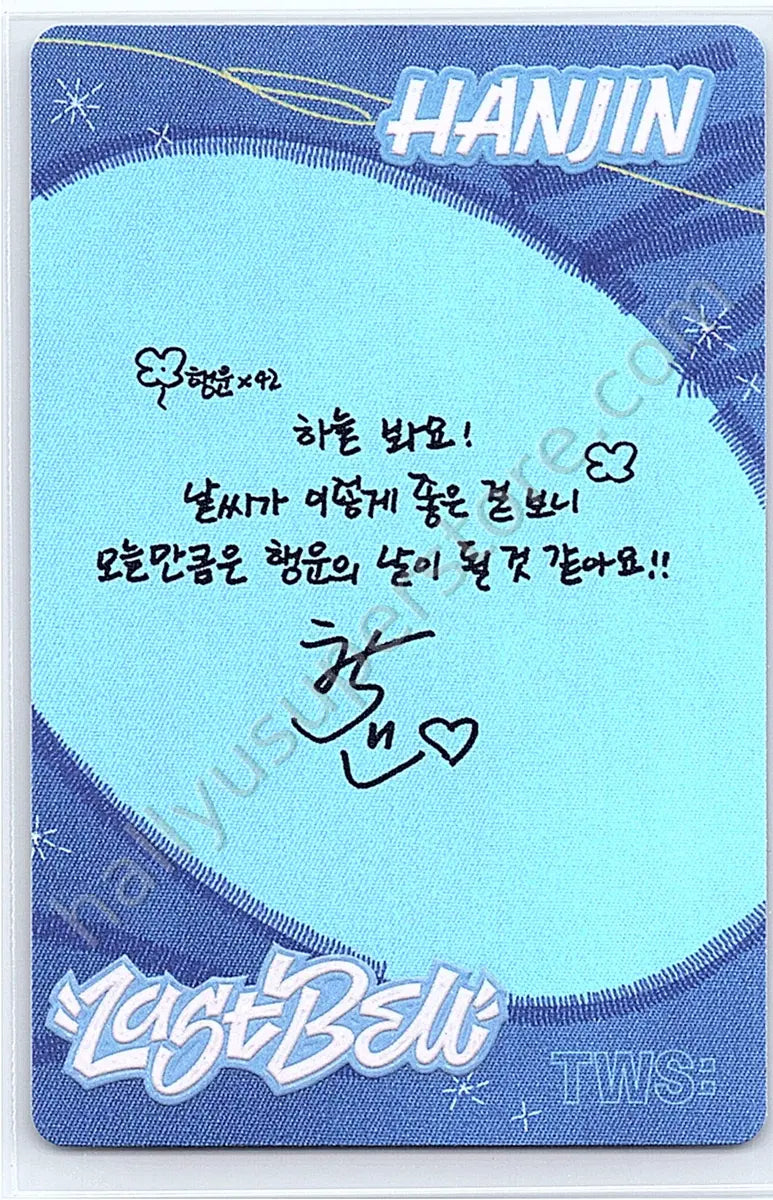 HANJIN
행운 x42
하늘 봐요!
날씨가 이렇게 좋은 걸 보니
오늘만큼은 행운의 날이 될 것 같아요!!
Last Bell
TWS:
hallyusuperstore.com